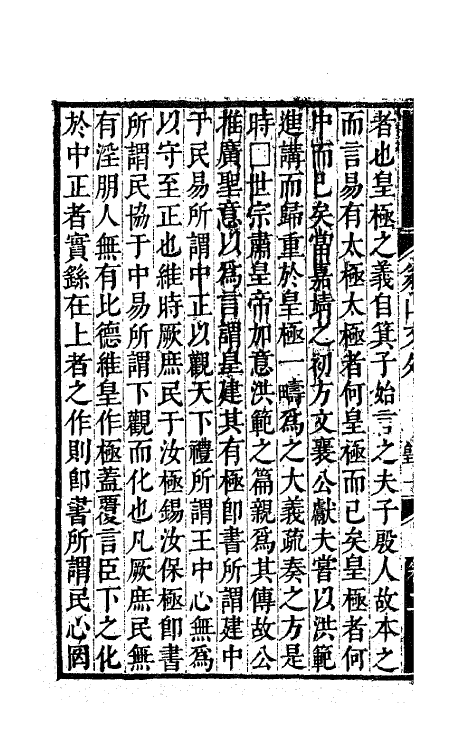 者也皇極之義自箕子始言之夫子殷人故本之
而言易有太極太極者何皇極而已矣皇極者何
中而已矣當嘉靖之初方文襄公獻夫嘗以洪範
進講而歸重於皇極一疇爲之大義疏奏之方是
時□世宗肅皇帝加意洪範之篇親爲其傳故公
推廣聖意以爲言謂皇建其有極卽書所謂建中
于民易所謂中正以觀天下禮所謂王中心無爲
以守至正也維時厥庶民于汝極錫汝保極卽書
所謂民協于中易所謂下觀而化也凡厥庶民無
有淫朋人無有比德維皇作極蓋覆言臣下之化
於中正者實繇在上者之作則卽書所謂民心罔